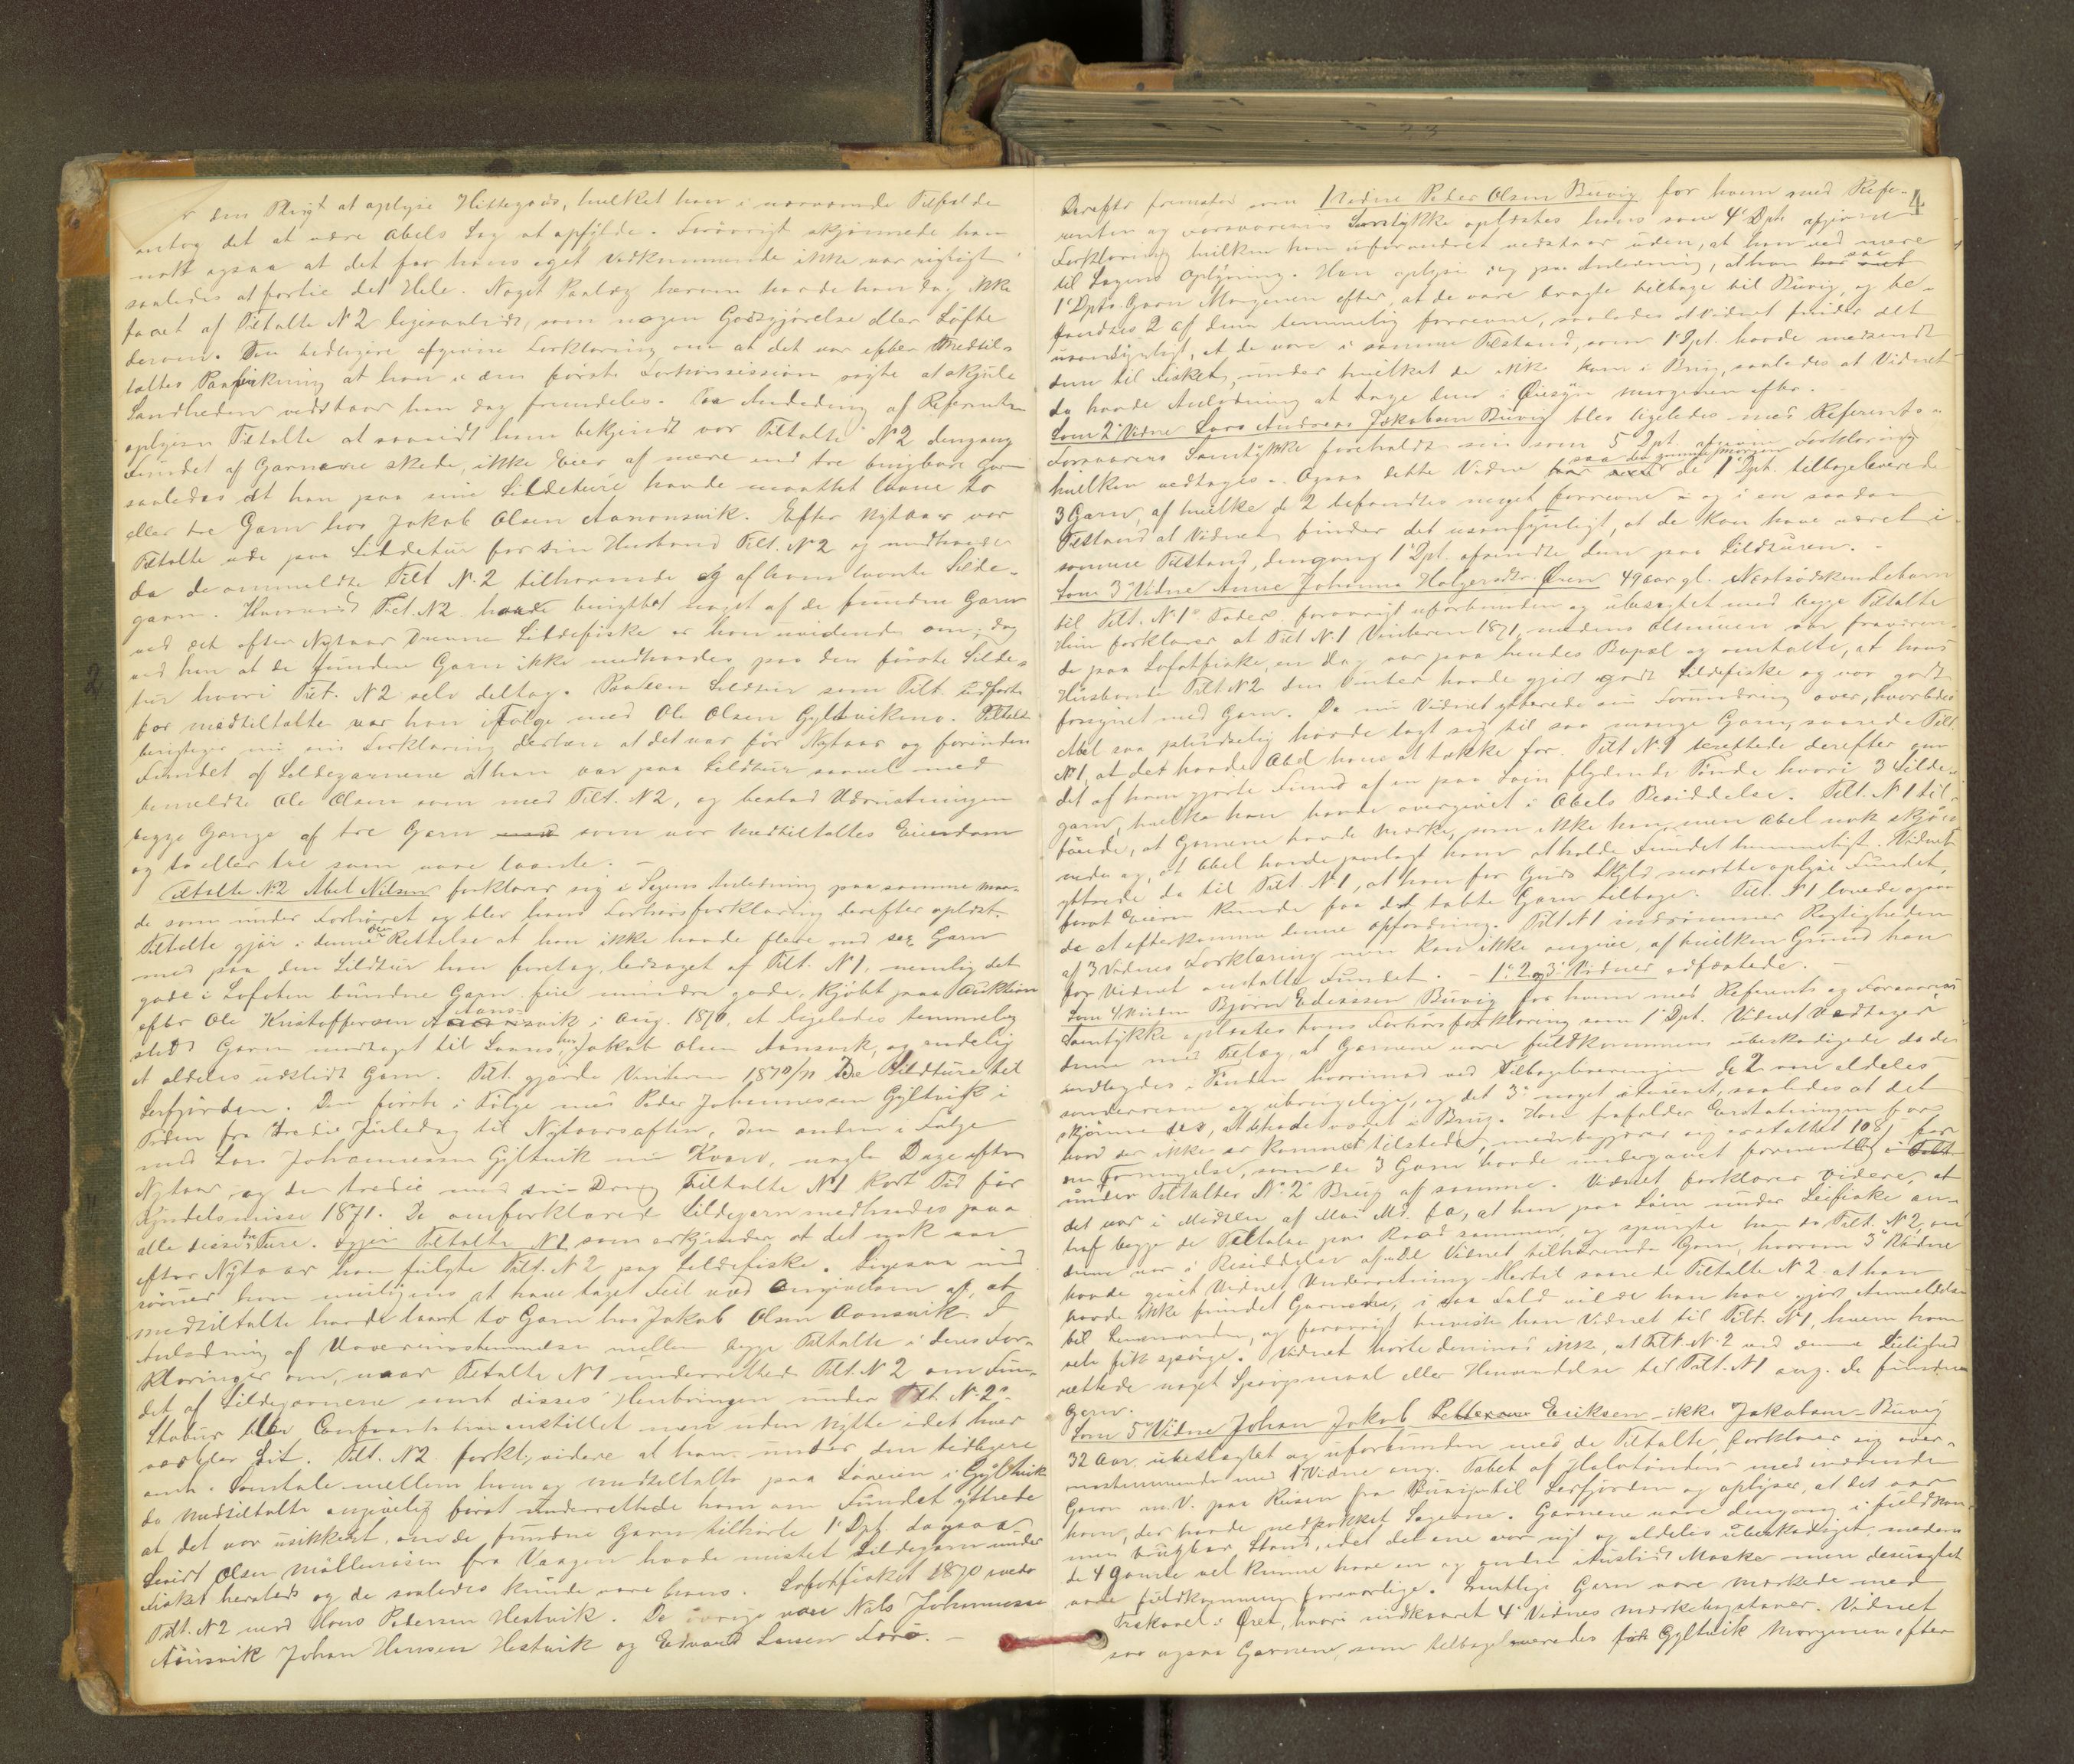 den Pligt at oplyse Hittegods, hvilket han i nærværende Tilfælde
antog det at være Abels Sag at opfylde. Forøvrigt skjønnede han
nok ogsaa at det for hans eget Vedkommende ikke var rigtigt
saaledes at fortie det Hele. Noget Paalæg herom havde han dog ikke
faaet af Tiltalte N 2 ligesaalidt, som nogen Godtgjørelse eller Løfte
derom. Den tidligere afgivne Forklaring om at det var efter Medtil-
taltes Paavirkning at han i den første Forhørssession søgte at skjule
Sandheden vedstaar han dog fremdeles. Paa Anledning af Referenten
oplyser Tiltalte at saavidt ham bekjendt var Tiltalte N 2 dengang
Fundet af Garnene skede, ikke Eier af mere end tre brugbare Garn
saaledes at han paa sine Sildeture havde maattet laane to
eller tre Garn hos Jakob Olsen Aanonsvik. Efter Nytaar var
Tiltalte ude paa Sildetur for sin Husbond Tilt. N 2 og medhavde
da de ommeldte Tilt N. 2 tilhørende og af ham laante Silde-
garn. Hvorvidt Tilt. N 2 havde benyttet noget af de fundne Garn
ved det efter Nytaar Drevne Sildefiske er han uvidende om; dog
ved han at de fundne Garn ikke medhavdes paa den første Silde-
tur hvori Tilt. N 2 selv deltog. Paa den Sildtur som Tilt. udførte
for medtiltalte var han i Følge med Ole Olsen Gyltvikmo. Tiltalte
berigtiger nu sin Forklaring derhen at det var før Nytaar og forinden
Fundet af Sildegarnene at han var paa Sildtur saavel med
bemeldte Ole Olsen som med Tilt. N 2, og bestod Udrustningen
begge Gange af tre Garn som var Medtiltaltes Eiendom
og to eller tre som vare laante. —
Tiltalte N. 2 Abel Nilsen forklarer sig i Sagens Anledning paa samme maa-
de som under Forhøret og blev hans Forhørsforklaring derefter oplæst.
Tiltalte gjør i denne den Rettelse at han ikke havde flere end sex Garn
med paa den Sildtur han foretog, ledsaget af Tilt. N 1, nemlig det
gode i Lofoten bundne Garn, fire mindre gode, kjøbt paa Auktion
efter Ole Kristoffersen Aansvik i Aug. 1870, et ligeledes temmelig
slidt Garn modtaget til Laans hos Jakob Olsen Aansvik, og endelig
et aldeles udslidt Garn. Tilt. gjorde Vinteren 1870/71 3de Sildture til
Leirfjorden. Den første i Følge med Peder Johannessen Gyltvik i
Tiden fra tredie Juledag til Nytaarsaften, den anden i Følge
med Lars Johannessen Gyltvik nu Kvarv, nogle Dage efter
Nytaar, og den tredie med sin Dreng Tiltalte N 1 kort Tid før
Kyndelsmisse 1871. De omforklarede Sildegarn medhavdes paa
alle disse tre Ture. Tiltalte N 1 som erkjender at det nok var
efter Nytaar han fulgte Tilt. N 2 paa Sildefiske. Ligesaa ind
rømmer han muligens at have taget Feil med Angivelsen af, at
medtiltalte havde laant to Garn hos Jakob Olsen Aansvik. I
Anledning af Uoverensstemmelsen mellem begge Tiltalte i deres For-
klaringer om, naar Tiltalte N 1 underrettede Tilt. N 2 om Fun-
det af Sildegarnene samt disses Henbringen under Tilt. N. 2s
Stabur blev Confrontation anstillet men uden Nytte idet hver
vedblev Sit. Tilt. N 2 forkl. videre at han under den tidligere
omh. Samtale mellem ham og medtiltalte paa Søveien i Gyltvik
da Medtiltalte angivelig først underrettede ham om Fundet yttrede
at det var usikkert, om de fundne Garn tilhørte 1' Dpt. da ogsaa
Sivert Olsen Møllenøsen fra Vaagen havde mistet Sildegarn under
Fisket hersteds og de saaledes kunde være hans. Lofotfisket 1870
Tilt. N 2 med Hans Pedersen Hestvik. De øvrige vare Nils Johannessen
Aansvik Johan Hansen Hestvik og Edvard Larsen Forø. —
4
Derefter fremstod som 1 Vidne Peder Olsen Buvig for hvem med Refe-
renten og Forsvarerens Samtykke oplæstes hans som 4' Dpt. afgivne
Forklaring hvilken han uforandret vedstaar uden, at han ved mere
til Sagens Oplysning. Han oplyser dog paa Anledning, at han saa
1' Dpts. Garn Morgenen efter, at de vare bragte tilbage til Buvig, og be-
fandtes 2 af dem temmelig forrevne, saaledes at Vidnet finder det
usandsynligt, at de vare i samme Tilstand, som 1' Dpt. havde medsendt
dem til Fisket, under hvilket de ikke kom i Brug, saaledes at Vidnet
da havde Anledning at tage dem i Øiesyn morgenen efter. -
Som 2' Vidne Lars Andreas Jakobsen Buvig blev ligeledes med Referents og
Forsvarerens Samtykke foreholdt sin som 5 Dpt. afgivne Forklaring
hvilken vedtages. Ogsaa dette Vidne saa den samme Morgen de 1' Dpt. tilbageleverede
3 Garn, af hvilke de 2 befandtes meget forrevne - og i en saadan
Tilstand at Vidnet finder det usandsynligt, at de kan have været i
samme Tilstand, dengang 1' Dpt. afsendte dem paa Sildturen. -
Som 3' Vidne Anne Johanna Holgersdtr Øien 49 Aar gl. Næstsødskendebarn
til Tilt. N. 1s Fader forøvrigt uforbunden og ubesvogret med begge Tiltalte
Hun forklarer at Tilt N. 1 Vinteren 1871, medens Almuen var fraværen-
de paa Lofotfiske, en Dag var paa hendes Bopæl og omtalte, at hans
Husbonde Tilt N 2 den Vinter havde gjort godt Sildefiske og var godt
forsynet med Garn. Da nu Vidnet yttrede sin Forundring over, hvorledes
Abel saa pludselig havde lagt sig til saa mange Garn, svarede Tilt.
N. 1, at det havde Abel ham at takke for. Tilt N. 1 berettede derefter om
det af ham gjorte Fund af en paa Søen flydende Tønde hvori 3 Silde-
garn, hvilke han havde overgivet i Abels Besiddelse. Tilt. N 1 til-
føiede, at Garnene havde Mærke, som ikke han, men Abel nok skjøn-
nede og, at Abel havde paalagt ham at holde Fundet hemmeligt. Vidnet
yttrede da til Tilt. N. 1, at han for Guds Skyld maatte oplyse Fundet,
forat Eieren kunde faa det tabte Garn tilbage. Tilt. N 1 lovede ogsaa
da at efterkomme denne Opfordring. Tilt. N 1 indrømmer Rigtigheden
af 3 Vidnes Forklaring men kan ikke angive, af hvilken Grund han
for Vidnet omtalte Fundet. - 1' 2 og 3' Vidner edfæstede. -
Som 4 Vidne Bjørn Edvardsen Buvig for hvem med Referents og Forsvarers
Samtykke oplæstes hans Forhørsforklaring som 1' Dpt. Vidnet vedtager
denne med Tillæg, at Garnene vare fuldkommen ubeskadigede da de
nedlagdes i Tønden hvorimod ved Tilbageleveringen de 2 vare aldeles
sønderrevne og ubrugelige, og det 3' noget itureret, saaledes at det
skjønnedes, at have været i Brug. Han frafalder Erstatningen for
hvad der ikke er kommet tilstede, men begjærer sig erstattet 108 for
en Fornyelse, som de 3 Garn havde undergaaet formentlig
under Tiltaltes N. 2s Brug af samme. Vidnet forklarer videre, at
det var i Midten af Mai Md. f.a., at han paa Søen under Seifiske an-
traf begge de Tiltalte paa Baad sammen, og spurgte han da Tilt. N 2, om
denne var i Besiddelse af Vidnet tilhørende Garn, hvorom 3' Vidne
havde givet Vidnet Underretning. Hertil svarede Tiltalte N 2 at han
havde ikke fundet Garnene, i saa Fald vilde han have gjort Anmeldelse
til Lensmanden, og forøvrigt henviste han Vidnet til Tilt. N 1, hvem han
selv fik spørge. Vidnet hørte derimod ikke, at Tilt. N. 2 ved denne Leilighed
rettede noget Spørgsmaal eller Henvendelse til Tilt. N 1 ang. de fundne
Garn.
Som 5' Vidne Johan Jakob Eriksen - ikke Jakobsen - Buvig
32 Aar, ubeslægtet og uforbunden med de Tiltalte, forklarer sig over-
ensstemmende med 1 Vidne ang. Tabet af Halvtønden med indeholdende
Garn m.V. paa Reisen fra Buvig til Leirfjorden og oplyser, at det var
ham, der havde nedpakket Sagerne. Garnene vare dengang i fuldkom-
men brugbar Stand, idet det ene var nyt og aldeles ubeskadiget, medens
de 4 gamle vel kunne have en og anden itusledt Maske men desuagtet
vare fuldkommen forsvarlige. Samtlige Garn vare mærkede med
Trekavel i Øret, hvori indskaaret 4' Vidnes Mærkebogstaver. Vidnet
saa ogsaa Garnene, som tilbageleveredes fra Gyltvik Morgenen efter